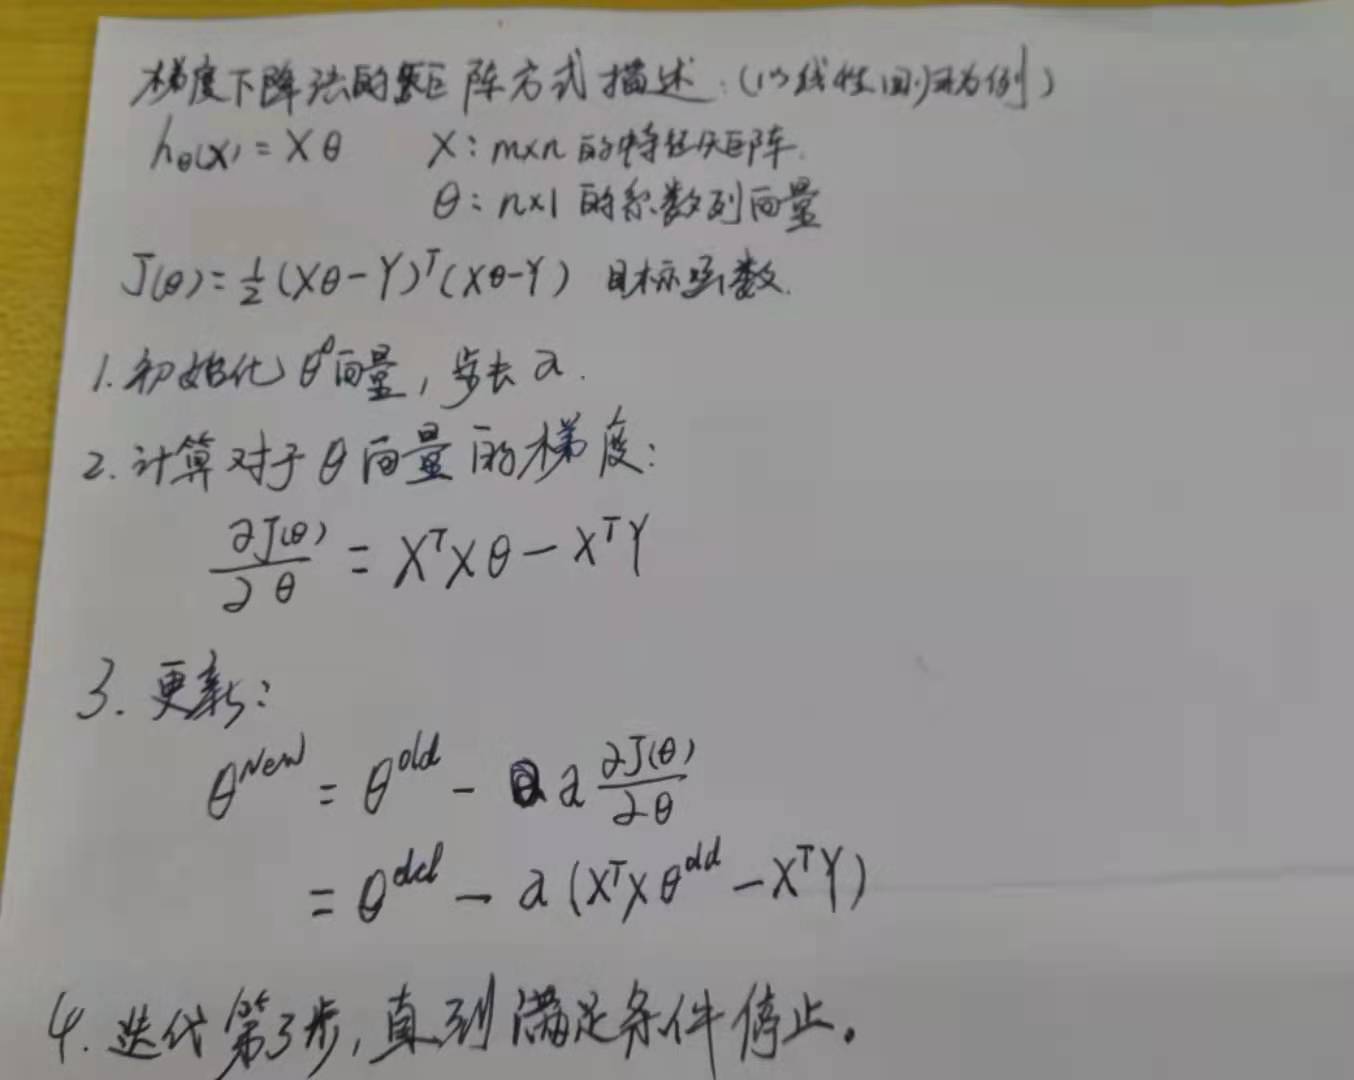 梯度下降法的矩阵方式描述.(以线性回归为例)
hθ(X) = Xθ X: m×n 的特征矩阵.
θ: n×1 的系数列向量
J(θ) = 1/2 (Xθ-Y)ᵀ(Xθ-Y) 目标函数.
1. 初始化 θ⁰向量, 步长 a.
2. 计算对于 θ 向量的梯度:
∂J(θ)/∂θ = XᵀXθ - XᵀY
3. 更新:
θᴺᵉʷ = θᵒˡᵈ - a ∂J(θ)/∂θ
= θᵒˡᵈ - a (XᵀXθᵒˡᵈ - XᵀY)
4. 迭代第3步, 直到满足条件停止。